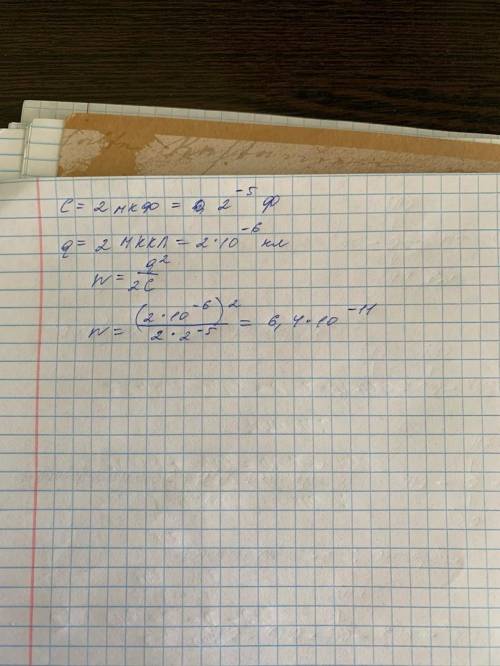 C = 2 мкФ = 2⁻⁵ Ф
q = 2 мккл = 2·10⁻⁶ кл
W = q²/2C
W = (2·10⁻⁶)²/2·2⁻⁵ = 6,4·10⁻¹¹